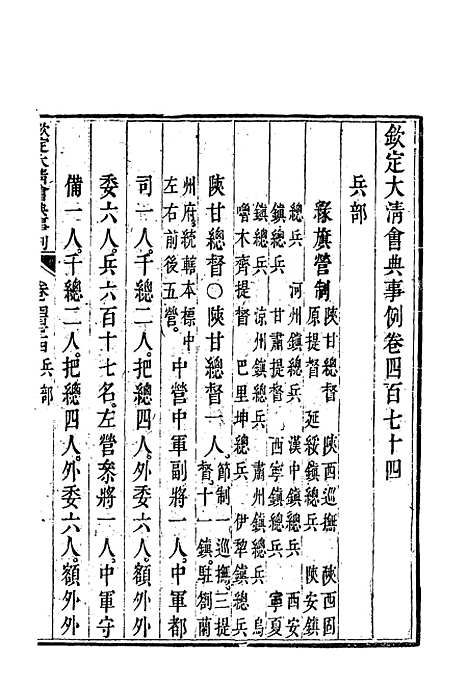 欽定大清會典事例卷四百七十四
兵部
綠旗營制
陝甘總督 陝西巡撫 陝西固
原提督 延綏鎮總兵 陝安鎮
總兵 河州鎮總兵 漢中鎮總兵 西安
鎮總兵 甘肅提督 西寧鎮總兵 寧夏
鎮總兵 涼州鎮總兵 肅州鎮總兵 烏
嚕木齊提督 巴里坤總兵 伊犂鎮總兵
陝甘總督○陝甘總督一人。
節制一巡撫三提
督十一鎮。駐劄蘭
州府。統轄本標中
左右前後五營。
中營中軍副將一人。中軍都
司一人。千總二人。把總四人。外委六人。額外外
委六人。兵六百十七名。左營參將一人。中軍守
備一人。千總二人。把總四人。外委六人。額外外
欽定大清會典事例
兵部